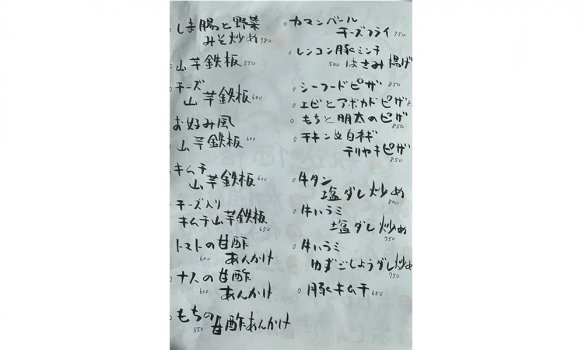 しま腸と野菜
みそ炒め 750
山芋鉄板 550
チーズ
山芋鉄板 600
お好み風
山芋鉄板 600
キムチ
山芋鉄板 600
チーズ入り
キムチ山芋鉄板 650
トマトの甘酢
あんかけ 600
ナスの甘酢
あんかけ 600
もちの
甘酢あんかけ 550
カマンベール
チーズフライ 750
レンコン豚ミンチ
はさみ揚げ 500
シーフードピザ 850
エビとアボカドピザ
もちと明太のピザ 850
チキン&白ネギ
テリヤキピザ 850
牛タン
塩ダレ炒め 800
牛ハラミ
塩ダレ炒め 750
牛ハラミ
ゆずこしょうダレ炒め 750
豚キムチ 650